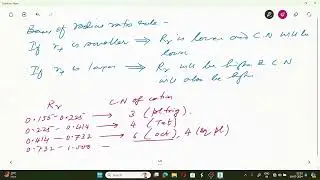 Bases of radius ratio rule -
If r+ is smaller ⟹ Rr is lower and C.N will be lower
If r+ is larger ⟹ Rr will be higher & C.N will also be higher
Rr C.N of cation
0.155-0.225 - 3 (pl trig).
0.225 - 0.414 - 4 (Tet)
0.414 - 0.732 - 6 (oct), 4 (sq pl)
0.732 - 1.000 -